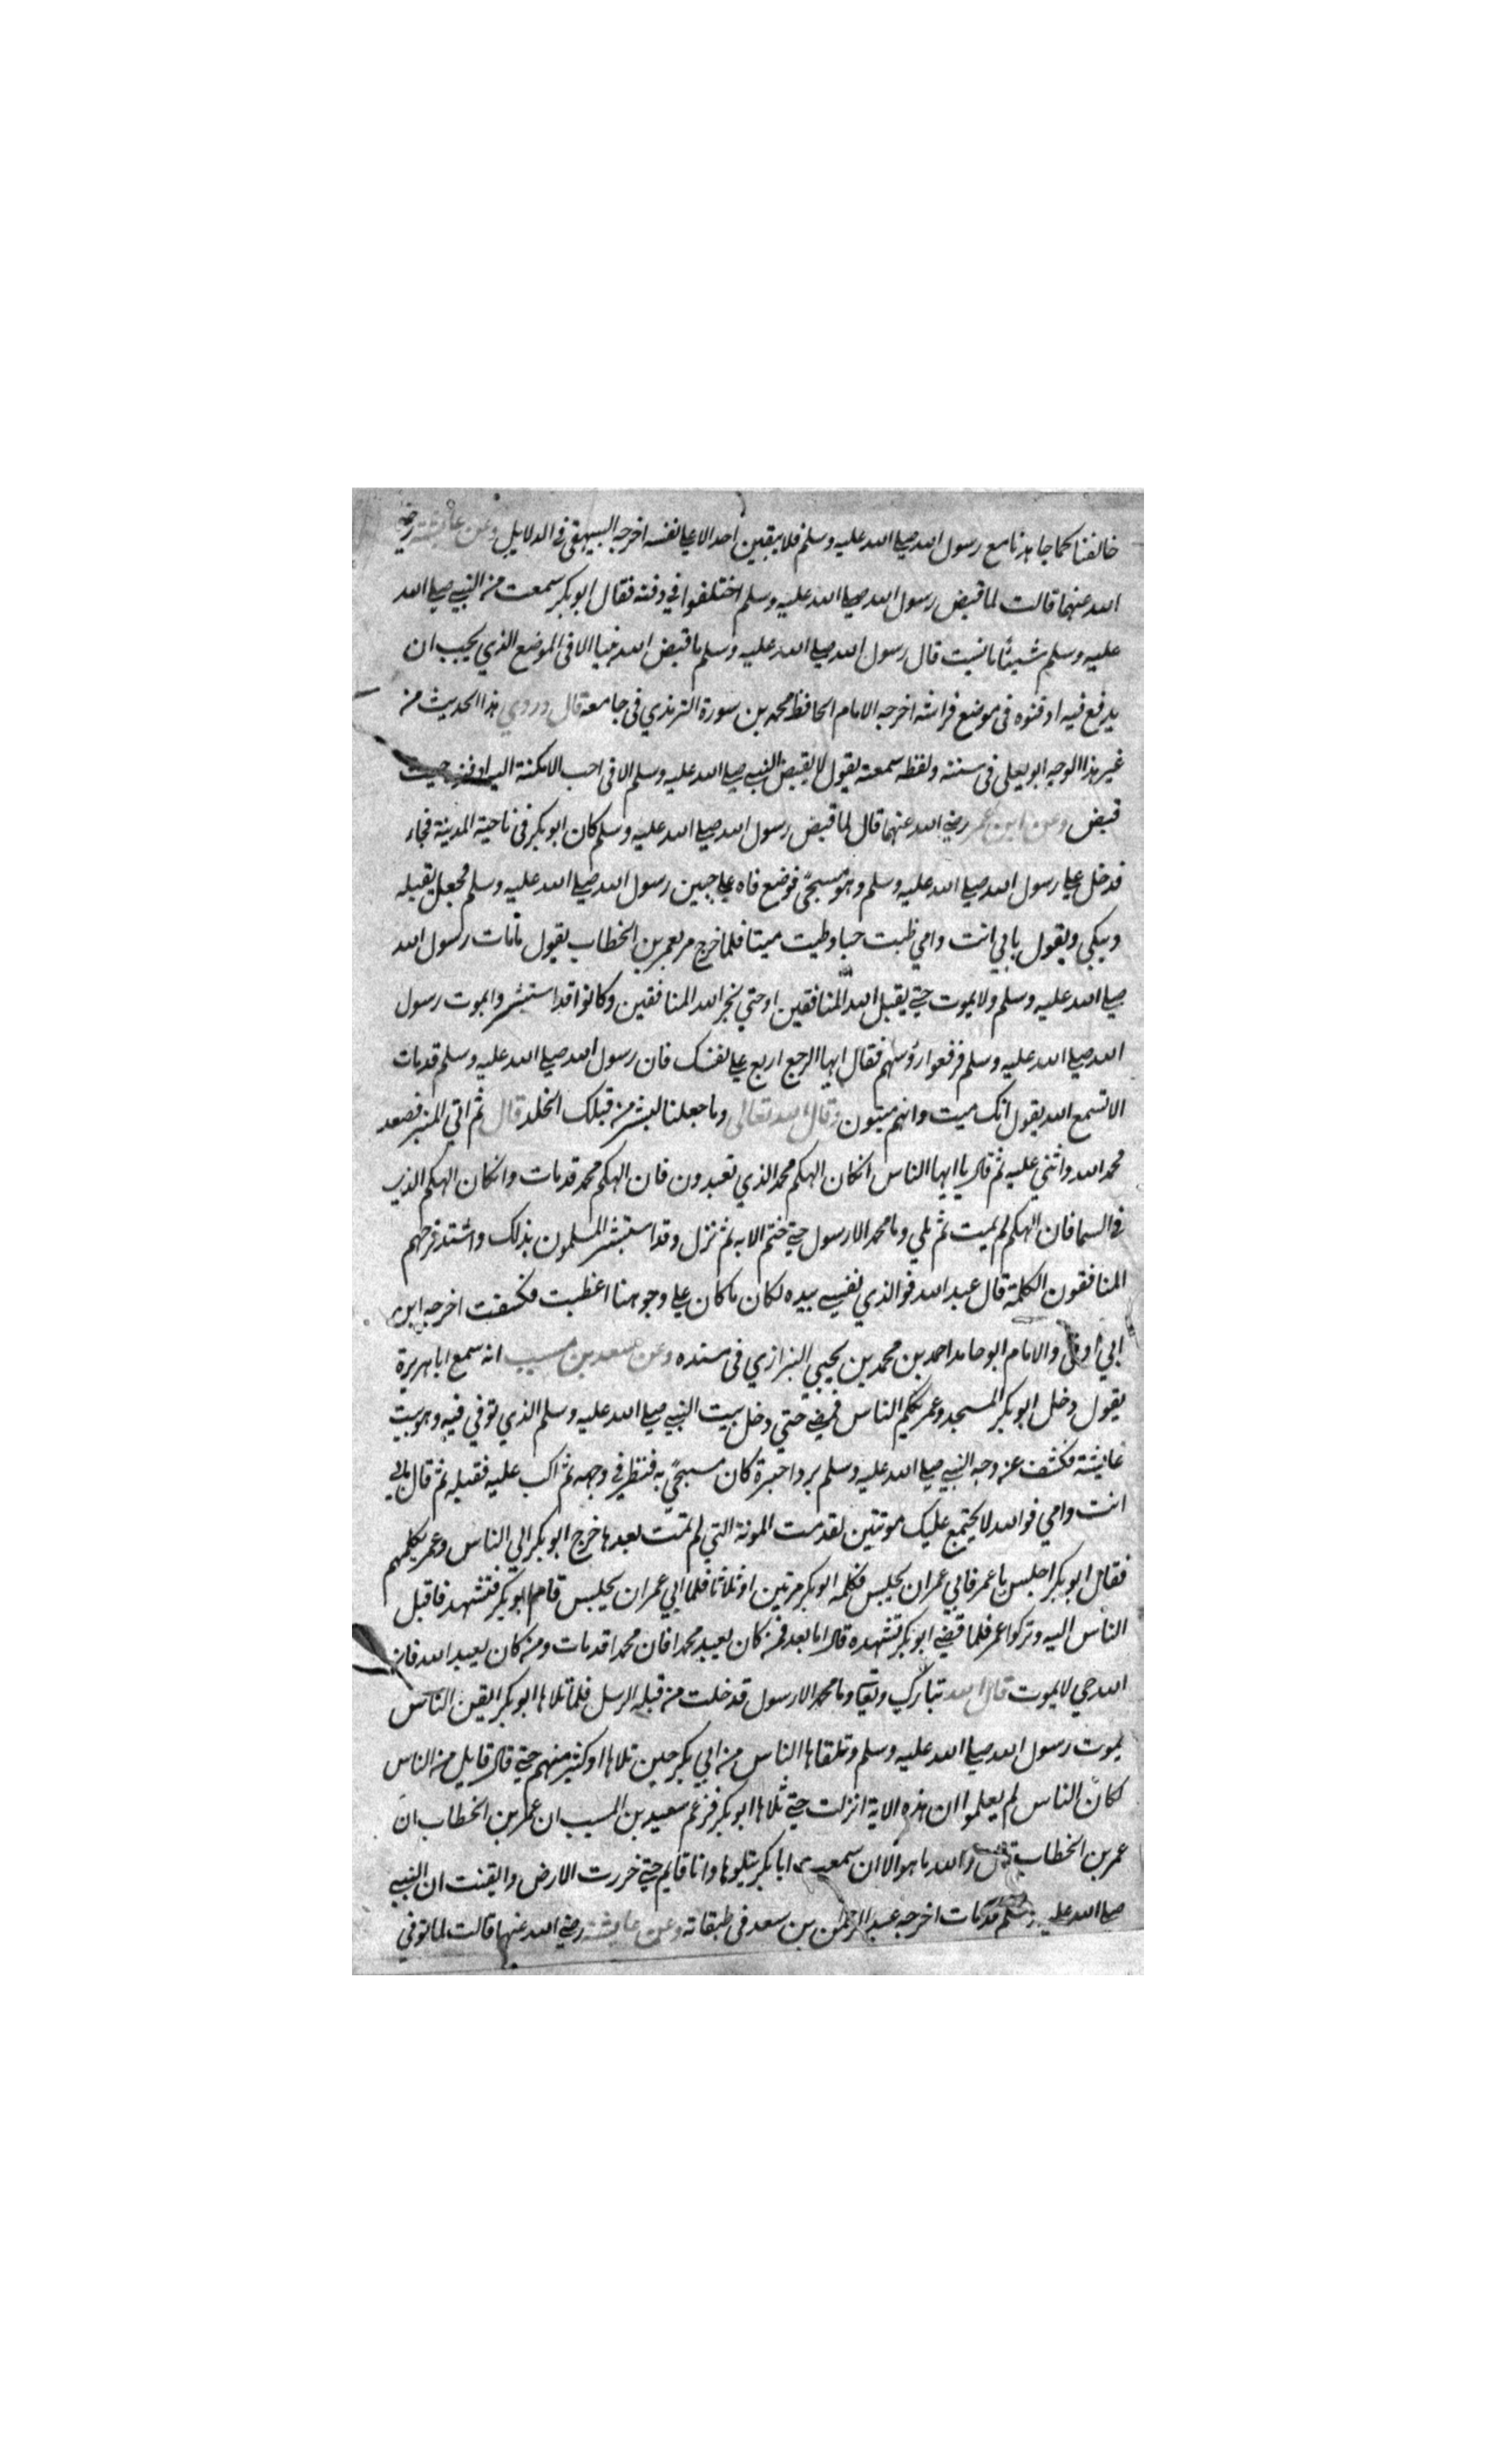 خالفنا كما جاهدنا مع رسول الله صلى الله عليه وسلم فلا يبقين احد الا على نفسه اخرجه البيهقى فى الدلايل وعن عايشة رضى
الله عنها قالت لما قبض رسول الله صلى الله عليه وسلم اختلفوا في دفنه فقال ابو بكر سمعت من النبي صلى الله
عليه وسلم شيئا ما نسيت قال رسول الله صلى الله عليه وسلم ما قبض الله نبيا الا فى الموضع الذي يحب ان
يدفع فيه ادفنوه فى موضع فراشه اخرجه الامام الحافظ محمد بن سورة الترمذي فى جامعه قال وروي هذا الحديث من
غير هذا الوجه ابو يعلى فى سننه ولفظه سمعته يقول لا يقبض النبي صلى الله عليه وسلم الا فى احب الامكنة اليه ادفنه حيث
قبض وعن ابن عمر رضي الله عنهما قال لما قبض رسول الله صلى الله عليه وسلم كان ابو بكر فى ناحية المدينة فجاء
فدخل على رسول الله صلى الله عليه وسلم وهو مسجًى فوضع فاه على جبين رسول الله صلى الله عليه وسلم فجعل يقبله
ويبكي ويقول بابي انت وامي طبت حيا وطبت ميتا فلما خرج مر بعمر بن الخطاب يقول ما مات رسول الله
صلى الله عليه وسلم ولا يموت حتى يقبل الله المنافقين او حتى يخبر الله المنافقين وكانوا قد استبشروا بموت رسول
الله صلى الله عليه وسلم فرفعوا رؤسهم فقال ايها الرجع اربع على نفسك فان رسول الله صلى الله عليه وسلم قد مات
الا تسمع الله يقول انك ميت وانهم ميتون وقال الله تعالى وما جعلنا لبشر من قبلك الخلد قال ثم اتى المنبر فصعد
محمد الله واثني عليه ثم قال يا ايها الناس ان كان الهكم محمد الذي تعبدون فان الهكم محمد قد مات وان كان الهكم الذي
فى السما فان الهكم لم يمت ثم تلي وما محمد الا رسول حتى ختم الايه ثم نزل وقد استبشر المسلمون بذلك واشتد فرحهم
المنافقون الكلمة قال عبد الله فوالذي نفسي بيده لكان ما كان على وجوهنا اغطيت فكشفت اخرجه ابن
ابي اوفى والامام ابو حامد احمد بن محمد بن يحيى البزازي فى مسنده وعن سعد بن مسيب انه سمع ابا هريرة
يقول دخل ابو بكر المسجد وعمر يكلم الناس فمضى حتى دخل بيت النبي صلى الله عليه وسلم الذي توفي فيه وهو بيت
عايشة فكشف عن وجه النبي صلى الله عليه وسلم بردا حبرة كان مسجًى به فنظر فى وجهه ثم اكب عليه فقبله ثم قال بابي
انت وامي فوالله لا يجتمع عليك موتتين لقد مت الموتة التي لم تمت بعدها خرج ابو بكر الي الناس وعمر يكلمهم
فقال ابو بكر اجلس يا عمر فابي عمر ان يجلس فكلمه ابو بكر مرتين او ثلاثا فلما ابي عمر ان يجلس قام ابو بكر فتشهد فاقبل
الناس اليه وتركوا عمر فلما قضي ابو بكر تشهده قال اما بعد فمن كان يعبد محمدا فان محمدا قد مات ومن كان يعبد الله فان
الله حي لا يموت قال الله تبارك وتعالى وما محمد الا رسول قد خلت من قبله الرسل فلما تلاها ابو بكر ايقن الناس
بموت رسول الله صلى الله عليه وسلم وتلقاها الناس من ابي بكر حين تلاها او كثير منهم حتى قال قايل من الناس
لكان الناس لم يعلموا ان هذه الاية انزلت حتى تلاها ابو بكر فزعم سعيد بن المسيب ان عمر بن الخطاب ان
عمر بن الخطاب قال والله ما هو الا ان سمعت ابا بكر يتلوها وانا قايم حتى خررت الارض وايقنت ان النبي
صلى الله عليه وسلم قد مات اخرجه عبد الرحمن بن سعد فى طبقاته وعن عايشة رضي الله عنها قالت لما توفي